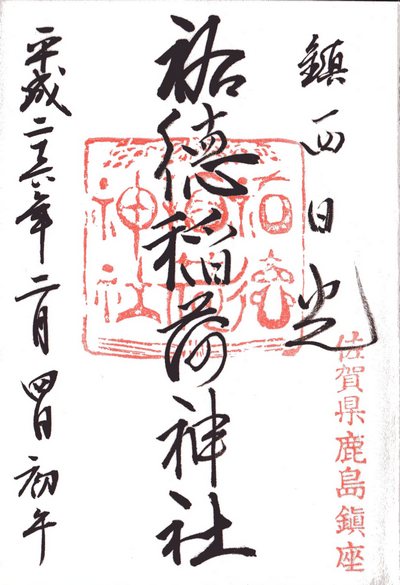 鎮西日光
佐賀県鹿島鎮座
祐徳稲荷神社
祐徳稲荷神社
平成二十六年二月四日初午